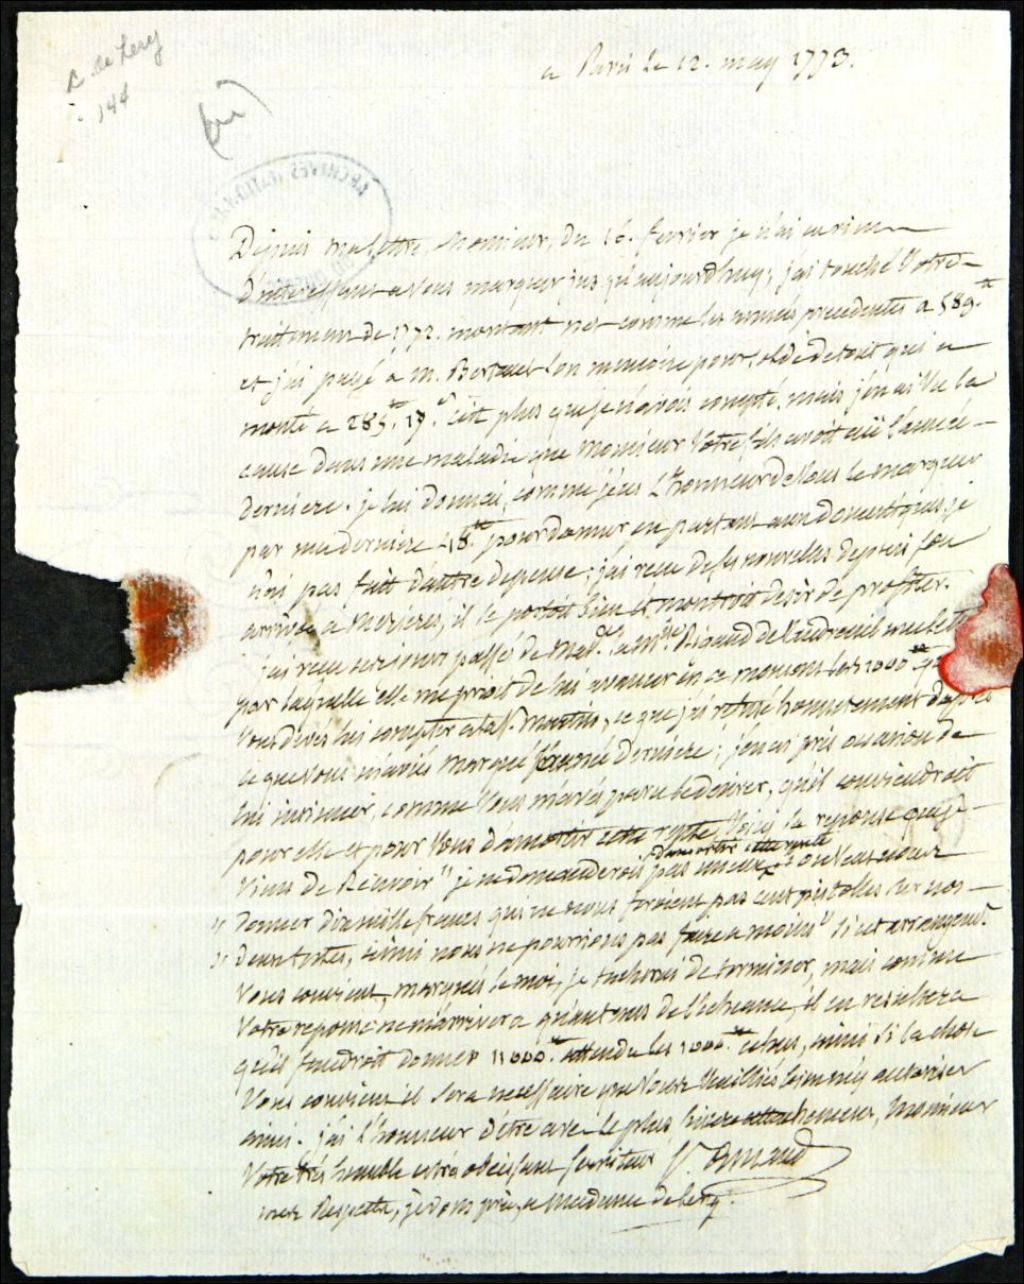 R de Lery
144
a Paris le 12. may 1773.
ARCHIVES NATIONALES
Depuis ma lettre, Monsieur, du 16. fevrier je n'ai eu rien
d'interessant a vous marquer jusqu'aujourdhuy; j'ai touché votre
traitement de 1772. montant net comme les années precedentes a 589.tt
et j'ai payé a M. son memoire pour solde de tout qui a
monté a 285.tt 19.s c'est plus que je n'avois compté, mais j'en ai vu la
cause dans une maladie que Monsieur votre fils avoit eüe l'année
derniere. je lui donnai, comme j'eus l'honneur de vous le marquer
par ma derniere 48.tt pour donner en partant aux domestiques, je
n'ai pas fait d'autre depense; j'ai recu de ses nouvelles depuis son
arrivée a Mezieres, il se portoit bien et montroit desir de profiter.
j'ai recu ces jours passés de Mad.e la M.ise Rigaud de Vaudreuil une lettre
par laquelle elle me prioit de lui avancer en ce moment les 1000.tt que
vous devés lui compter a la S.t Martin, ce que j'ai refusé honnetement d'après
ce que vous m'aviés marqué l'année derniere; j'en ai pris occasion de
lui insinuer, comme vous m'avés paru le desirer, qu'il conviendroit
pour elle et pour vous d'amortir cette rente, voici la reponse que je
d'amortir cette rente
viens de recevoir " je ne demanderois pas mieux si on veut nous
" donner dix mille francs qui ne nous feroient pas cent pistolles sur nos
" deux testes, ainsi nous ne pourrions pas faire a moins " si cet arrangem.t
vous convient, marqués le moi, je tacherai de terminer, mais comme
votre reponse ne m'arrivera qu'au tems de l'echeance, il en resultera
qu'il faudroit donner 11000.tt attendu les 1000.tt echus, ainsi si la chose
vous convient il sera necessaire que vous veuilliés bien m'y autoriser
ainsi. j'ai l'honneur d'être avec le plus sincere attachement, Monsieur
Votre trés humble et trés obeissant serviteur V. Amaud
mes Respects, je vous prie, a Madame de Lery.